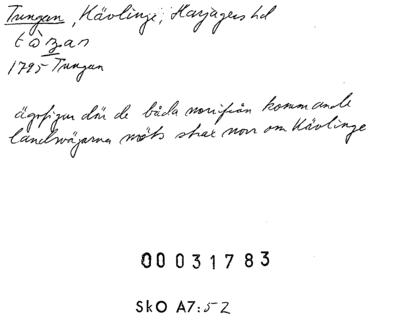 Trungan, Kävlinge, Harjagers hd
tòŋan
1795 Trungan
ägofigur där de båda norrifrån kommande
landsvägarna möts strax norr om Kävlinge
00031783
SkO A7:52